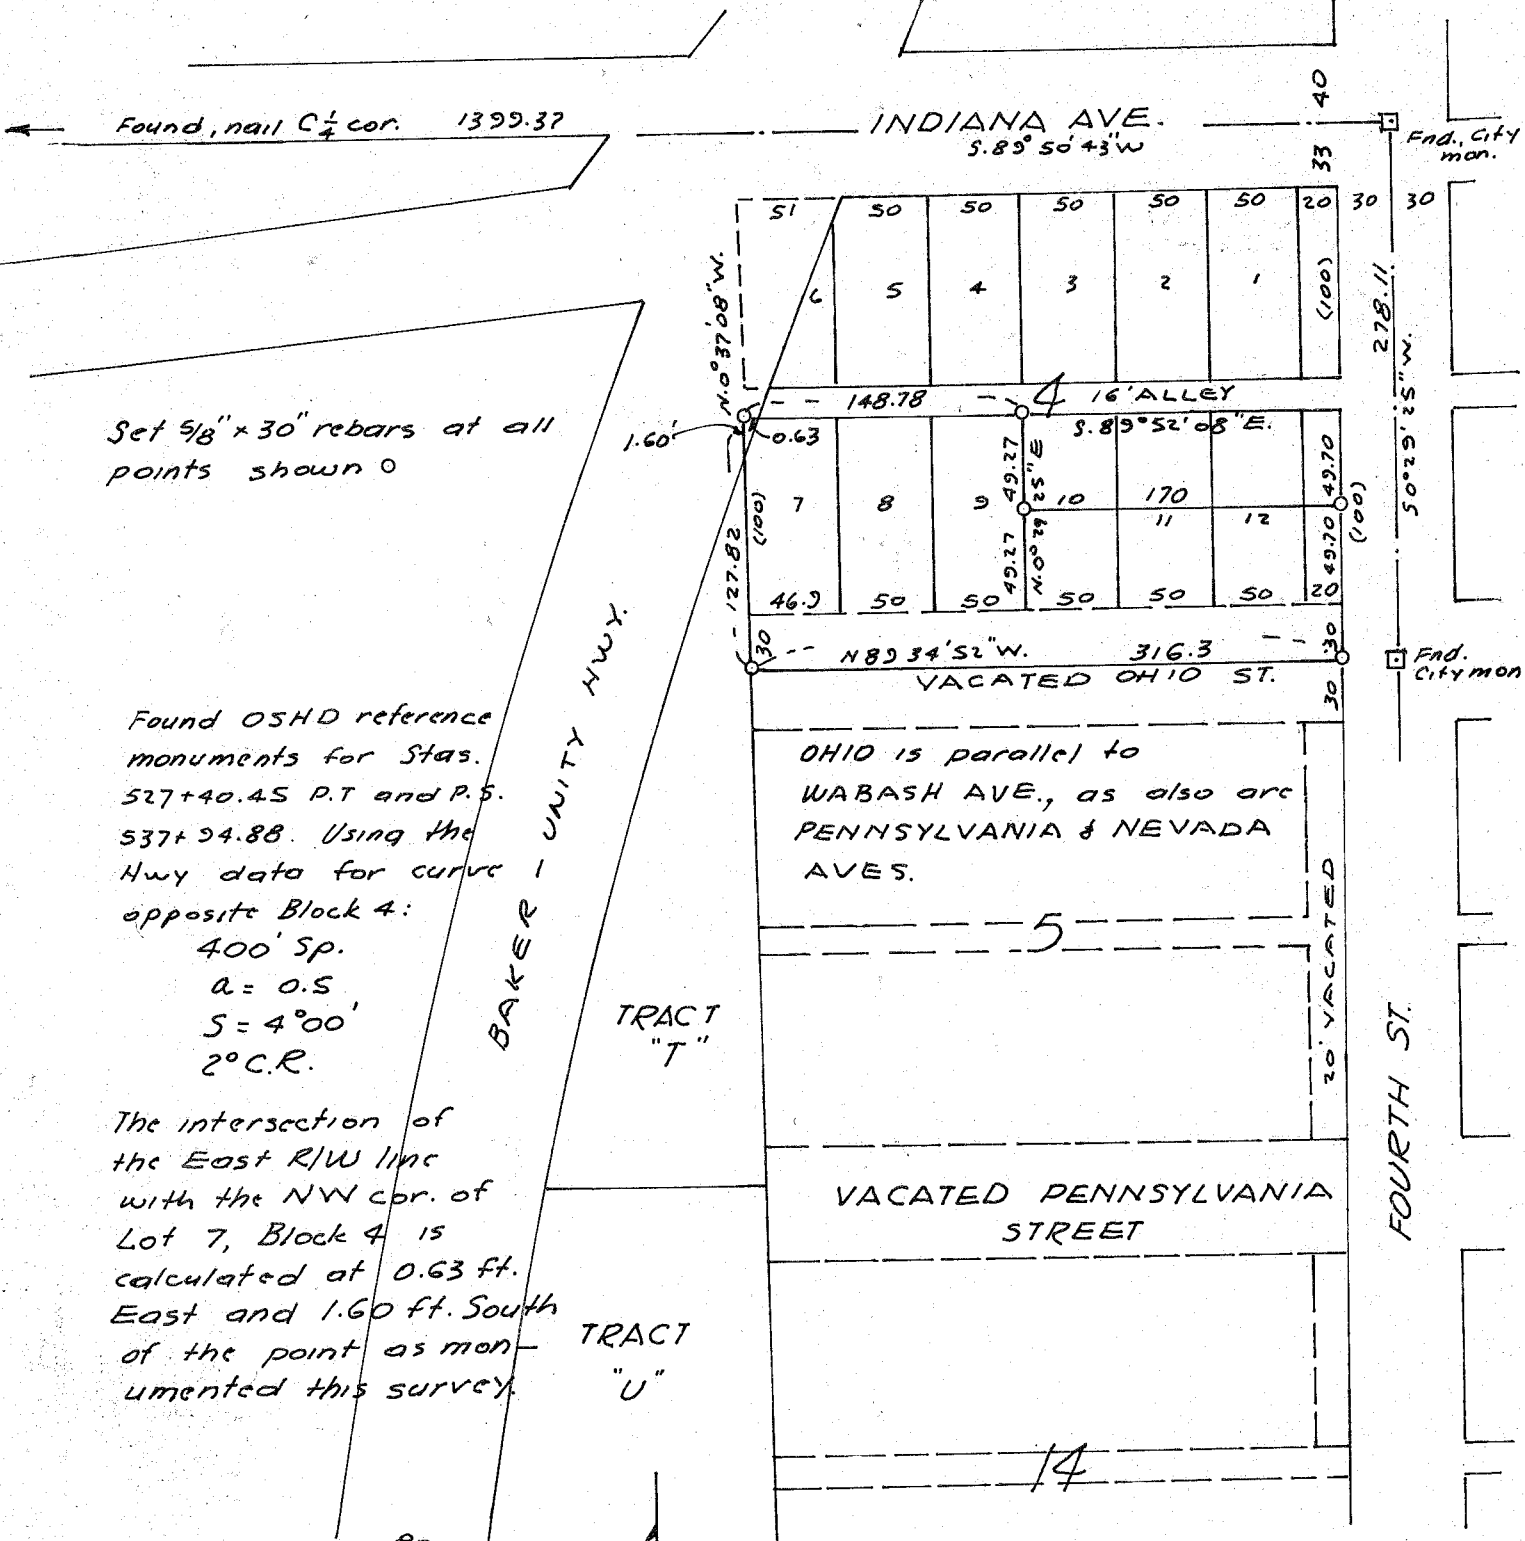 Found, nail C 1/4 cor. 1399.37
INDIANA AVE.
S.89° 50' 43" W
40
33
Fnd., City
mon.
51 50 50 50 50 50 20 30 30
6 5 4 3 2 1 (100)
N.0°37'08"W.
278.11
S0°29'25"W.
148.78
4
16' ALLEY
S.89°52'08"E.
1.60'
0.63
Set 5/8" x 30" rebars at all
points shown O
7 8 9 10 170
11 12
(100)
49.27
49.27
N.0°29'25"E
49.70
49.70
(100)
127.82
46.9 50 50 50 50 50 20
30
N89 34'52"W. 316.3
30
30
VACATED OHIO ST.
Fnd.
City mon
BAKER - UNITY HWY.
Found OSHD reference
monuments for Stas.
527+40.45 P.T and P.S.
537+94.88. Using the
Hwy data for curve
opposite Block 4:
400' Sp.
a = 0.5
S = 4°00'
2° C.R.
The intersection of
the East R/W line
with the NW cor. of
Lot 7, Block 4 is
calculated at 0.63 ft.
East and 1.60 ft. South
of the point as mon-
umented this survey.
OHIO is parallel to
WABASH AVE., as also are
PENNSYLVANIA & NEVADA
AVES.
5
20' VACATED
TRACT
"T"
FOURTH ST.
VACATED PENNSYLVANIA
STREET
TRACT
"U"
14